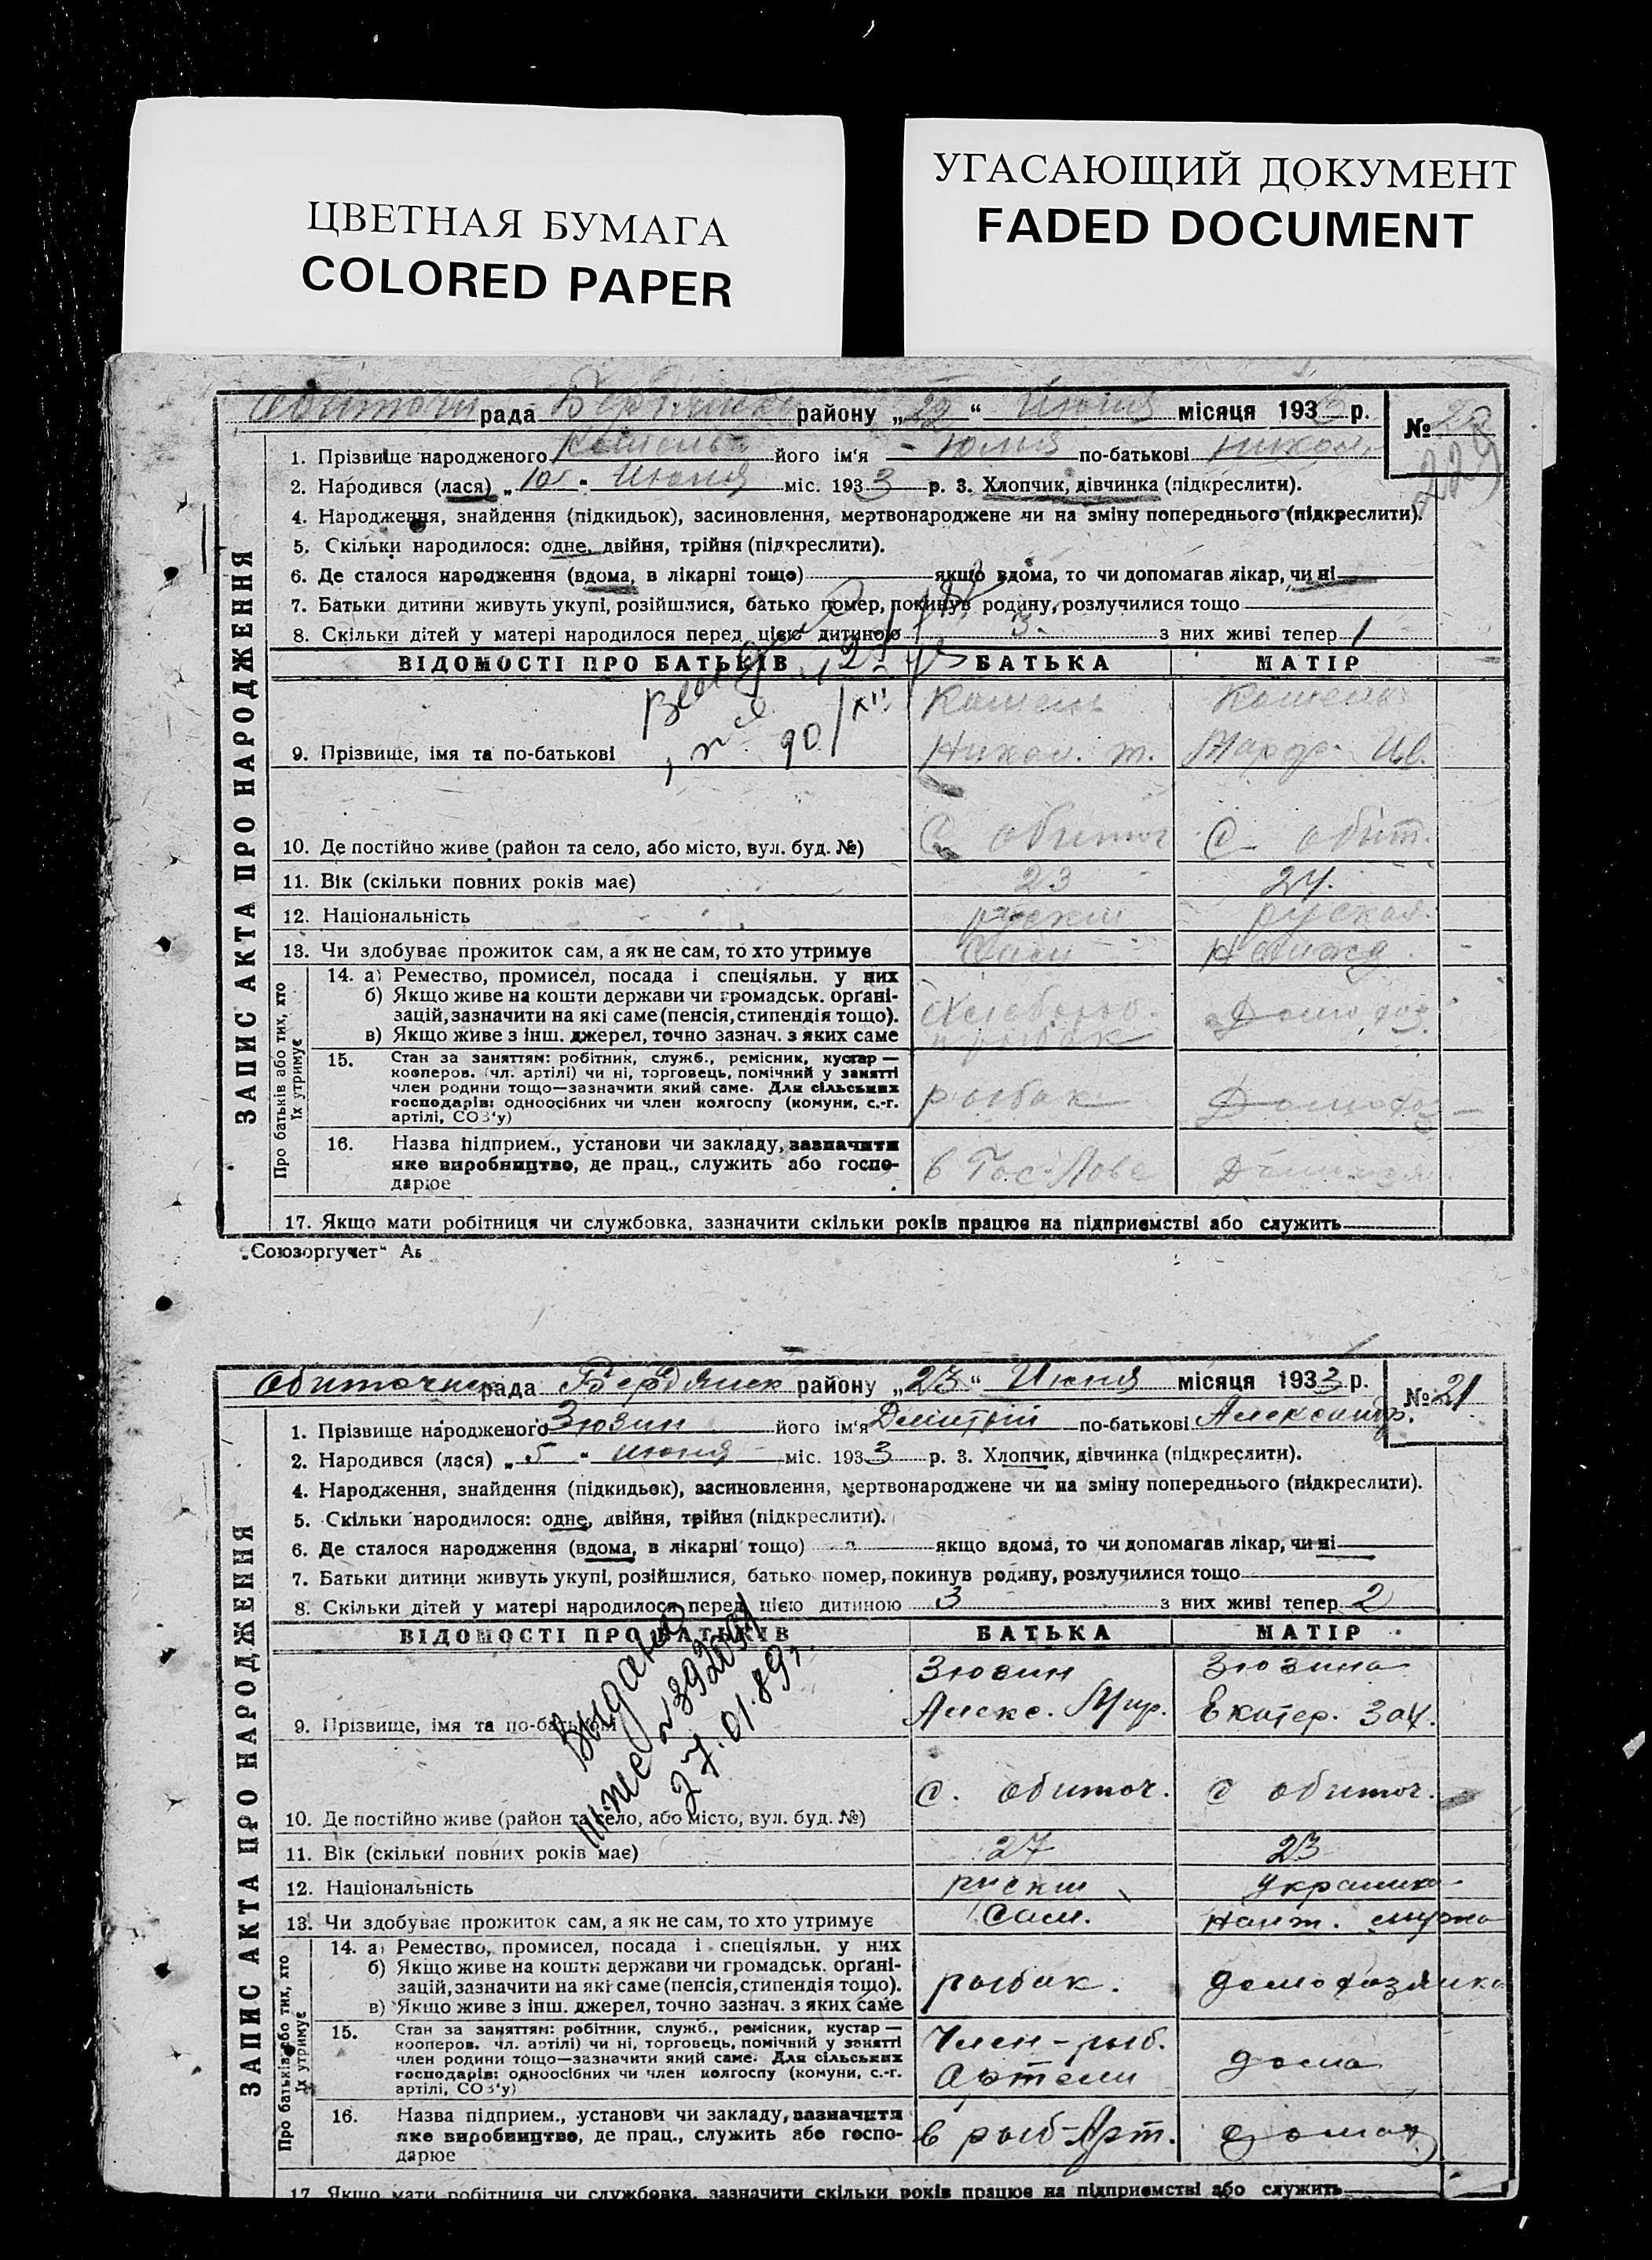 ЦВЕТНАЯ БУМАГА
COLORED PAPER
УГАСАЮЩИЙ ДОКУМЕНТ
FADED DOCUMENT
рада району „22“ Июня місяця 1933 р. №
1. Прізвище народженого його ім'я Юлия по-батькові Никол.
2. Народився (лася) „10“ Июня міс. 1933 р. 3. Хлопчик, дівчинка (підкреслити).
4. Народження, знайдення (підкидьок), засиновлення, мертвонароджене чи на зміну попереднього (підкреслити).
5. Скільки народилося: одне, двійня, трійня (підкреслити).
6. Де сталося народження (вдома, в лікарні тощо) якщо вдома, то чи допомагав лікар, чи ні
7. Батьки дитини живуть укупі, розійшлися, батько помер, покинув родину, розлучилися тощо
8. Скільки дітей у матері народилося перед цією дитиною 3. з них живі тепер 1
ВІДОМОСТІ ПРО БАТЬКІВ БАТЬКА МАТІР
Никол. т. Ив.
9. Прізвище, імя та по-батькові
С обиточ С. обит.
10. Де постійно живе (район та село, або місто, вул. буд. №)
11. Вік (скільки повних років має) 23 24.
12. Національність руский руская.
13. Чи здобуває прожиток сам, а як не сам, то хто утримує Сам
14. а) Ремество, промисел, посада і спеціяльн. у них
б) Якщо живе на кошти держави чи громадськ. орґані-
зацій, зазначити на які саме (пенсія, стипендія тощо).
в) Якщо живе з інш. джерел, точно зазнач. з яких саме
15. Стан за заняттям: робітник, служб., ремісник, кустар —
кооперов. (чл. артілі) чи ні, торговець, помічний у занятті
член родини тощо—зазначити який саме. Для сільських
господарів: одноосібних чи член колгоспу (комуни, с.-г.
артілі, СОЗ'у)
рыбак
16. Назва підприєм., установи чи закладу, зазначити
яке виробництво, де прац., служить або госпо-
дарює
в Гос-Лове
17. Якщо мати робітниця чи службовка, зазначити скільки років працює на підприємстві або служить
ЗАПИС АКТА ПРО НАРОДЖЕННЯ
Про батьків або тих, хто їх утримує
„Союзоргучет“
Обиточн рада Бердянск району „23“ Июня місяця 1933 р. № 21
1. Прізвище народженого Зюзин його ім'я Дмитрий по-батькові Александр.
2. Народився (лася) „5“ июня міс. 1933 р. 3. Хлопчик, дівчинка (підкреслити).
4. Народження, знайдення (підкидьок), засиновлення, мертвонароджене чи на зміну попереднього (підкреслити).
5. Скільки народилося: одне, двійня, трійня (підкреслити).
6. Де сталося народження (вдома, в лікарні тощо) якщо вдома, то чи допомагав лікар, чи ні
7. Батьки дитини живуть укупі, розійшлися, батько помер, покинув родину, розлучилися тощо
8. Скільки дітей у матері народилося перед цією дитиною 3 з них живі тепер 2
ВІДОМОСТІ ПРО БАТЬКІВ БАТЬКА МАТІР
Зюзин Зюзина
Алекс. Екатер. Зах.
9. Прізвище, імя та по-батькові
27.01.89
С. обиточ. С обиточ.
10. Де постійно живе (район та село, або місто, вул. буд. №)
11. Вік (скільки повних років має) 27 23
12. Національність руский украинка
13. Чи здобуває прожиток сам, а як не сам, то хто утримує Сам. мужа
14. а) Ремество, промисел, посада і спеціяльн. у них
б) Якщо живе на кошти держави чи громадськ. орґані-
зацій, зазначити на які саме (пенсія, стипендія тощо).
в) Якщо живе з інш. джерел, точно зазнач. з яких саме
рыбак. домохазяика
15. Стан за заняттям: робітник, служб., ремісник, кустар —
кооперов. чл. артілі) чи ні, торговець, помічний у занятті
член родини тощо—зазначити який саме. Для сільських
господарів: одноосібних чи член колгоспу (комуни, с.-г.
артілі, СОЗ'у)
Член-рыб.
Артели дома
16. Назва підприєм., установи чи закладу, зазначити
яке виробництво, де прац., служить або госпо-
дарює
в рыб-Арт.
17. Якщо мати робітниця чи службовка, зазначити скільки років працює на підприємстві або служить
ЗАПИС АКТА ПРО НАРОДЖЕННЯ
Про батьків або тих, хто їх утримує